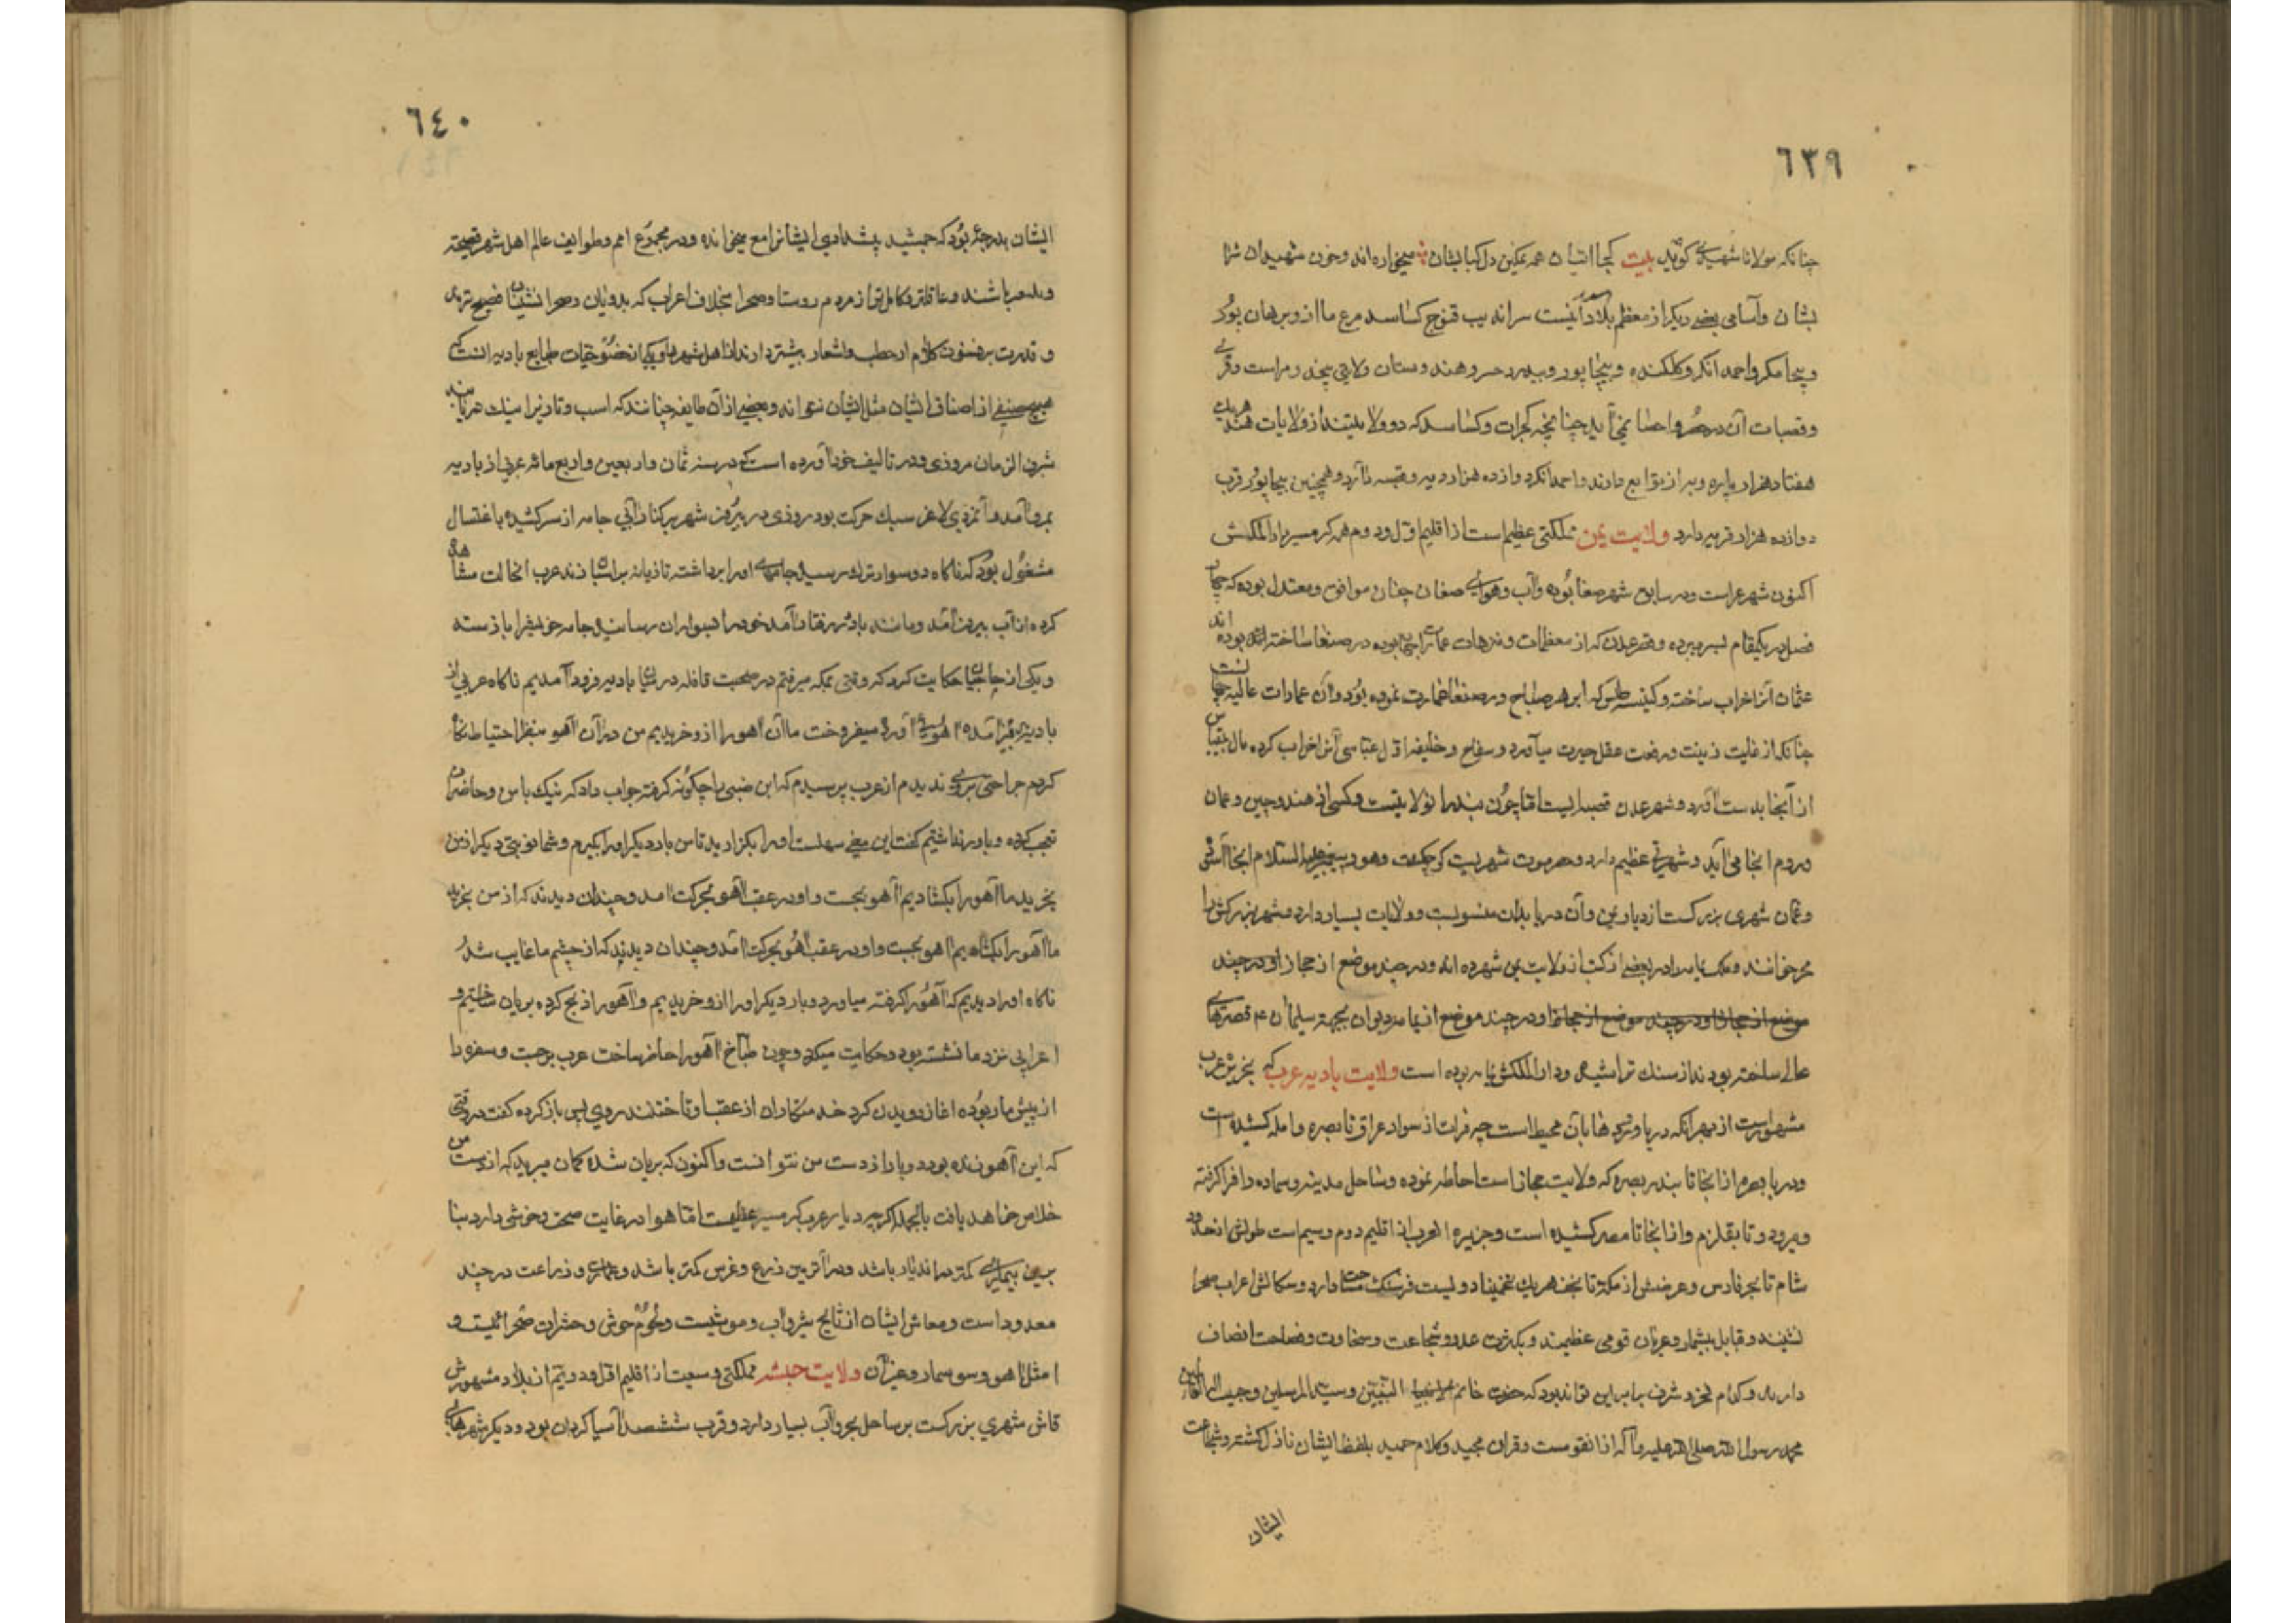 ٦٣٩
چنانکه مولانا شهیدی کوید بیت کجا اشیان همه مکین دل کبابشان میخواره اند وخون شهیدان شرا
بشان وآسامی بعضی دیکر از معظم بلاد آنست سراندیب قنوج از وبرهان پور
وبیجانکر واحمدانکر وکلکنده وبیجاپور وبیدر هندوستان ولایتی
وقصبات آن در حصر واحصا نمی آید چنانچه کجرات که دو ولایتند از ولایات هند هریک
هفتاد هزار پاره دیه از توابع دارند واحمدانکر دوازده هزار دیه وقصبه دارد وهمچنین بیجاپور قرب
دوازده هزار قریه دارد ولایت یمن مملکتی عظیم است از اقلیم اول ودوم دارالملکش
اکنون شهر است ودر سابق شهر صنعا بوده وآب وهوای صنعان چنان موافق ومعتدل بوده که چهار
فصل در یکمقام بسر میبرده وقصر غمدان که از معظمات عمارات بوده در صنعا ساخته بوده اند
عثمان آنرا خراب ساخته وکنیسه که ابرهه صباح در صنعا عمارت نموده بود وآن عمارات عالیه
چنانکه از غایت زینت ورفعت عقل حیرت میآورد وسفاح وخلیفه اول عباسی آنرا خراب کرده مال بقیاس
از آنجا بدست آورد وشهر عدن قصبه ایست اما چون بندر آنولایتست وکشتی از هند وچین وعمان
وروم انجا می آید وشهرتی عظیم دارد وحضرموت شهریست کوچک وهود پیغمبر علیه السلام انجا
وعمان شهری بزرکست از دیار یمن وآن دریا بدان منسوبست وولایات بسیار دارد وشهر بزرکش را
میخوانند ودر بعضی از کتب از ولایت یمن شمرده اند ودر چند موضع از حجاز ودر چند
موضع از حجاز ودر چند موضع از دیوان بجهة سلیمان ع قصرهای
عالی ساخته بودند از سنک تراشیده ودارالملکش بوده است ولایت بادیه عرب که بجزیره عرب
مشهور است از بهر آنکه دریا ورودها بآن محیط است چه فرات از سواد عراق تا بصره واید کشیده است
ودریا بصره از انجا تا بندر بصره که ولایت حجاز است احاطه نموده وساحل مدینه فرا کرفته
ومیرود تا بقلزم واز انجا تا مصر کشیده است وجزیرة العرب از اقلیم دوم وسیم است طولش از حدود
شام تا بحر فارس وعرضش از مکه تا نجف هریک تخمینا دویست فرسنک مسافت دارد وسکانش اعراب صحرا
نشینند وقبایل بیشمار وعربان قومی عظیمند وبکثرت عدد وشجاعت وسخاوت وفصاحت اتصاف
دارند وکدام فخر وشرف برابر این تواند بود که حضرت خاتم النبیین وسید المرسلین وحبیب اله العالمین
محمد رسول الله صلی الله علیه وآله از انقومست وقران مجید وکلام حمید بلفظ ایشان نازل کشته وشجاعت
ایشان
٦٤٠
ایشان بدرجهٔ بود که جمشید پیشدادی ایشانرا میخوانده ودر مجموع امم وطوایف عالم اهل شهر فصیحتر
باشند وعاقلتر وکاملتر از مردم روستا وصحرا بخلاف اعراب که بدویان وصحرا نشینان فصیح ترند
وقدرت بر فنون کلام از خطب واشعار بیشتر دارند از اهل شهر ویکی از خصوصیات طبایع بادیه آنست که
هیچ صنفی از اصناف انسان مثل ایشان ندوانه وبعضی از آن طایفه چنانند که اسب وتازیرا
شرف الزمان مروزی در تالیف خود آورده است که در سنه ثمان واربعین واربع مائه عربی از بادیه
بمرو آمد وآنمرد لاغر سبک حرکت بود روزی در بیرون شهر بر کنار آبی جامه از سر کشیده باغتسال
مشغول بود که ناکاه دو سوار ترک رسید جامهای او را برداشته تازیانه بر اسبان زدند عرب انحالت مشاهده
کرده از آب بیرون آمد ومانند باد در رفتار آمد خود را بسواران رسانید جامه خویش را باز ستد
ویکی از حاجیان حکایت کرد که وقتی بمکه میرفتم در صحبت قافله در بادیه فرود آمدیم ناکاه عربی از
بادیه آمده آهویی آورد میفروخت ما آن آهو را از وخریدیم من در آن آهو بنظر احتیاط نکاه
کردم جراحتی بروی ندیدم از عرب پرسیدم که این ظبی را چکونه کرفته جواب داد که بتک پا من وحاضران
تعجب کرده وباور نداشتیم کفت این معنی سهلست او را بکزارید تا من بار دیکر او را بکیرم وشما نوبتی دیکر از من
بخرید ما آهو را بکشادیم آهو بجست واو در عقب آهو بحرکت آمد وچندان دیدند که از من بخرید
ما آهو را بکشادیم آهو بجست واو در عقب آهو بحرکت آمد وچندان دیدند که از چشم ما غایب شد
ناکاه او را دیدیم که آهو را کرفته میاورد وبار دیکر او را از وخریدیم وآهو را ذبح کرده بریان ساختیم و
اعرابی نزد ما نشسته بود وحکایت میکرد وچون طباخ آهو را حاضر ساخت عرب برجست وسفره را
از پیش ما ربوده اغاز دویدن کرد خدمتکاران از عقب او تاختند روی پس باز کرده کفت در وقتی
که این آهو زنده بود از دست من نتوانست واکنون که بریان شده کمان میبرید که از دست من
خلاص خواهد یافت بالجمله اکرچه دیار عرب کرمسیر عظیمست اما هوا در غایت صحت وخوشی دارد بنا
برین بیماری کمتر دراندیار باشد ودر آنزمین زرع وغرس کمتر باشد وعمارت وزراعت در چند
معدود است ومعاش ایشان از نتایج ودواب ومواشیست ولحوم وحوش وحشرات صحرائیست و
امثل آهو وسوسمار وغیر آن ولایت حبشه مملکتی وسیعست از اقلیم اول ودویم از بلاد مشهورش
قاش شهری بزرکست بر ساحل بحر وآب بسیار دارد وقرب ششصد آسیا کردان بود ودیکر شهرهای